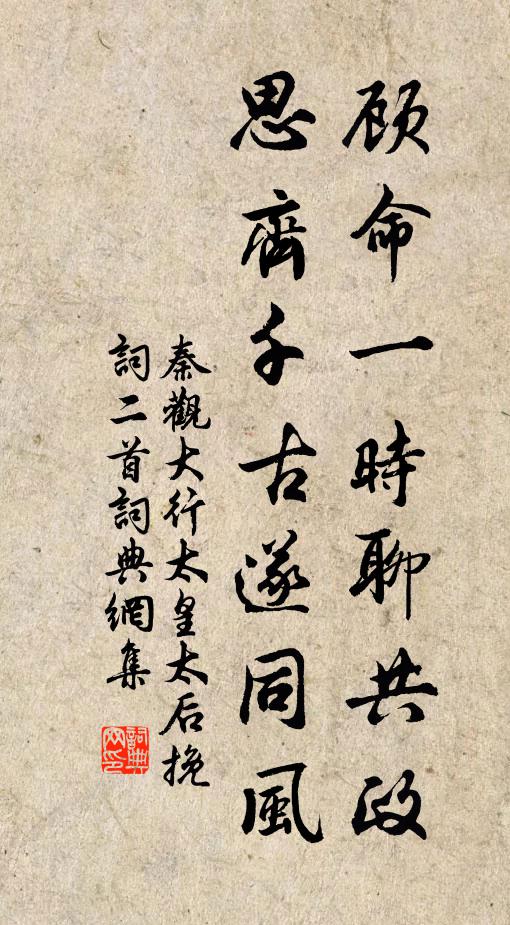 顾命一時聊共政
思齊千古遂同風
秦觀大行太皇太后挽
詞二首詞典網集
詞典
网印